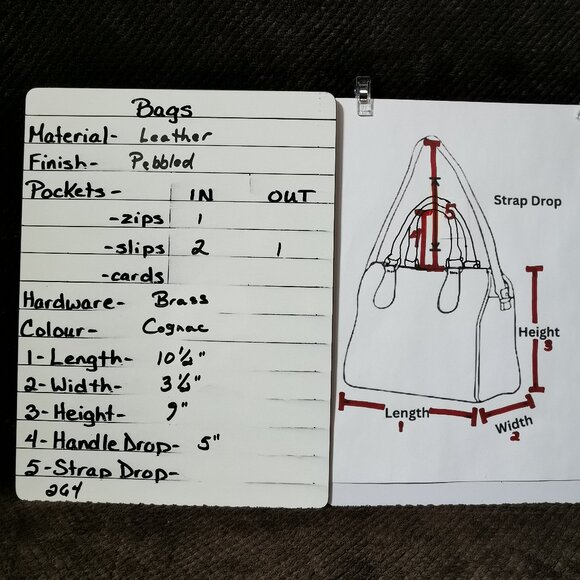 Bags
Material- Leather
Finish- Pebbled
Pockets- IN OUT
-zips 1
-slips 2 1
-cards
Hardware- Brass
Colour- Cognac
1-Length- 10½"
2-Width- 3½"
3-Height- 9"
4-Handle Drop- 5"
5-Strap Drop-
264
Strap Drop
5
4
Height
3
Length
1
Width
2